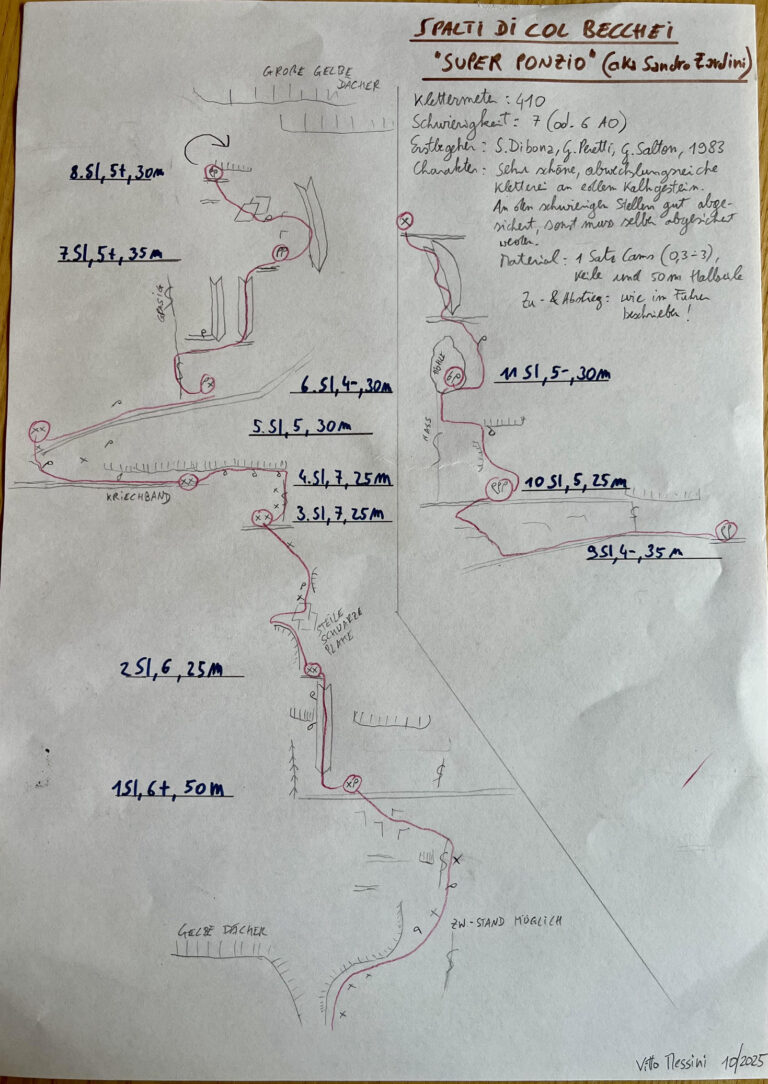 SPALTI DI COL BECCHEI
"SUPER PONZIO" (aka Sandro Zardini)
Klettermeter : 410
Schwierigkeit : 7 (od. 6 A0)
Erstbegeher : S. Dibona, G. Peretti, G. Salton, 1983
Charakter : Sehr schöne, abwechlungsreiche
Kletterei an edlem Kalkgestein.
An den schwierigen Stellen gut abge-
sichert, sonst muss selber abgesichert
werden.
Material : 1 Satz Cams (0,3-3),
Keile und 50m Halbseile
Zu- & Abstieg : wie im Führer
beschrieben !
GROßE GELBE
DÄCHER
8.Sl, 5+, 30m
7Sl, 5+, 35m
GRASIG
6.Sl, 4-, 30m
5.Sl, 5, 30m
4.Sl, 7, 25m
KRIECHBAND
3.Sl, 7, 25m
STEILE
SCHWARZE
PLATTE
2Sl, 6, 25m
1Sl, 6+, 50m
GELBE DÄCHER
ZW-STAND MÖGLICH
11Sl, 5-, 30m
NASS
10Sl, 5, 25m
9Sl, 4-, 35m
Vitto Messini 10/2025